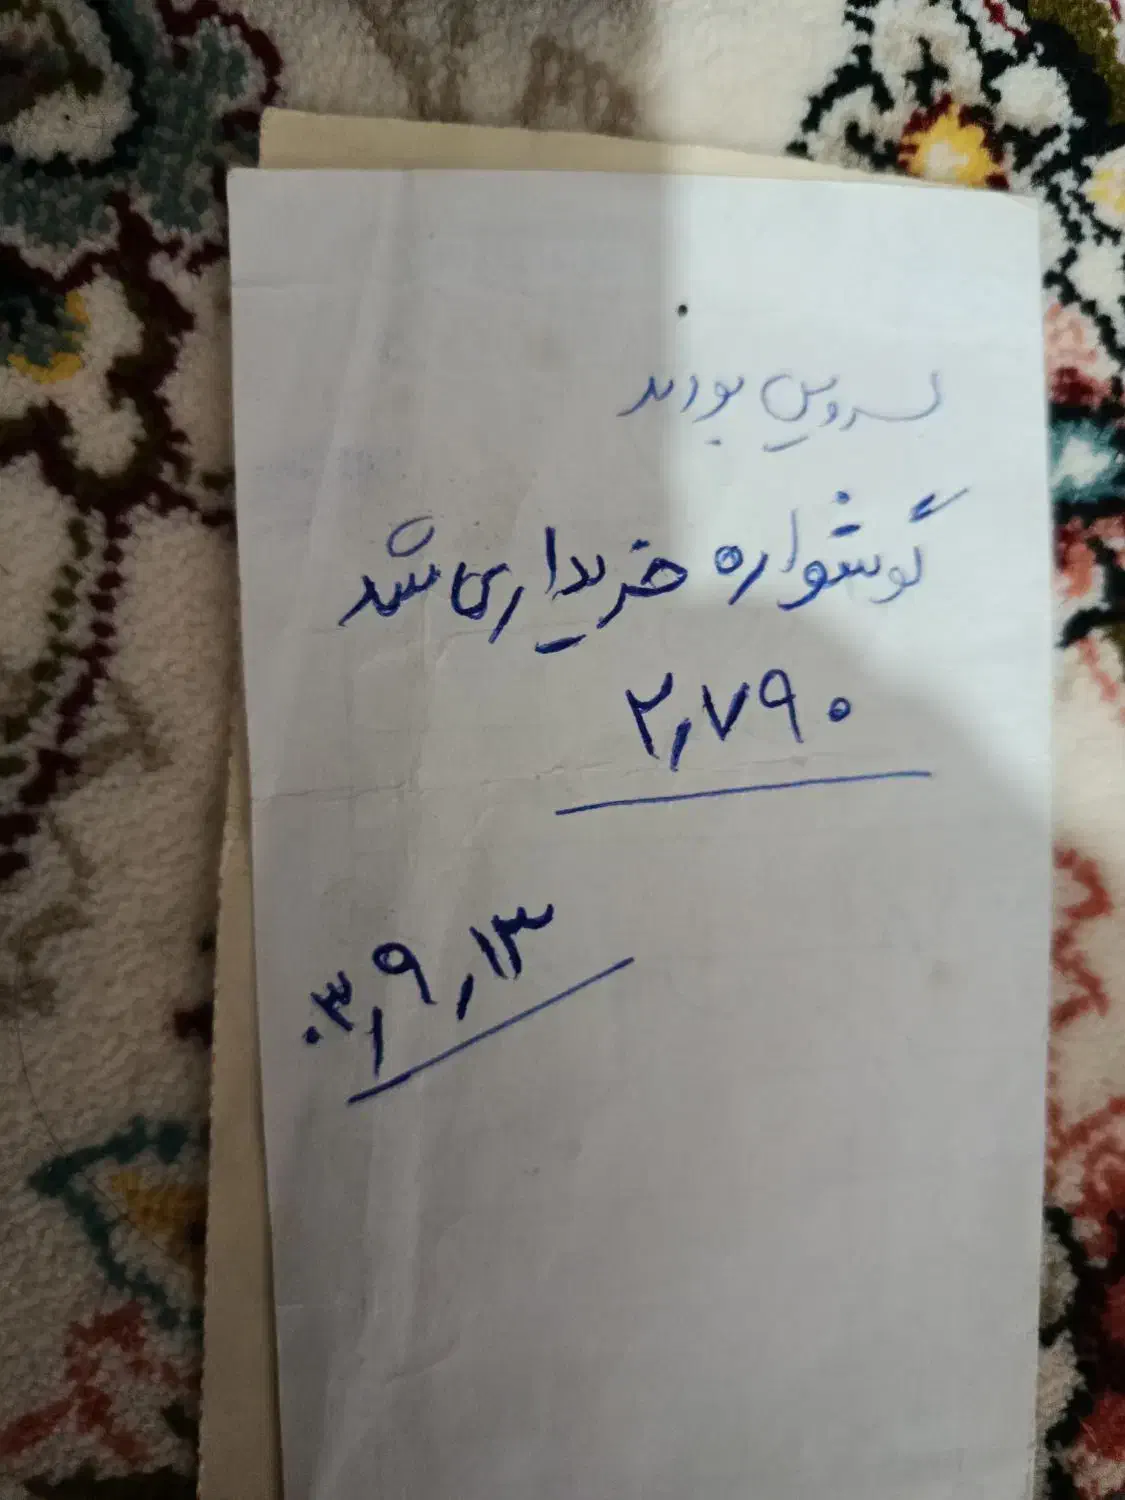 گوشواره خریداری شد
۲,۷۹۰
۰۳,۹,۱۳